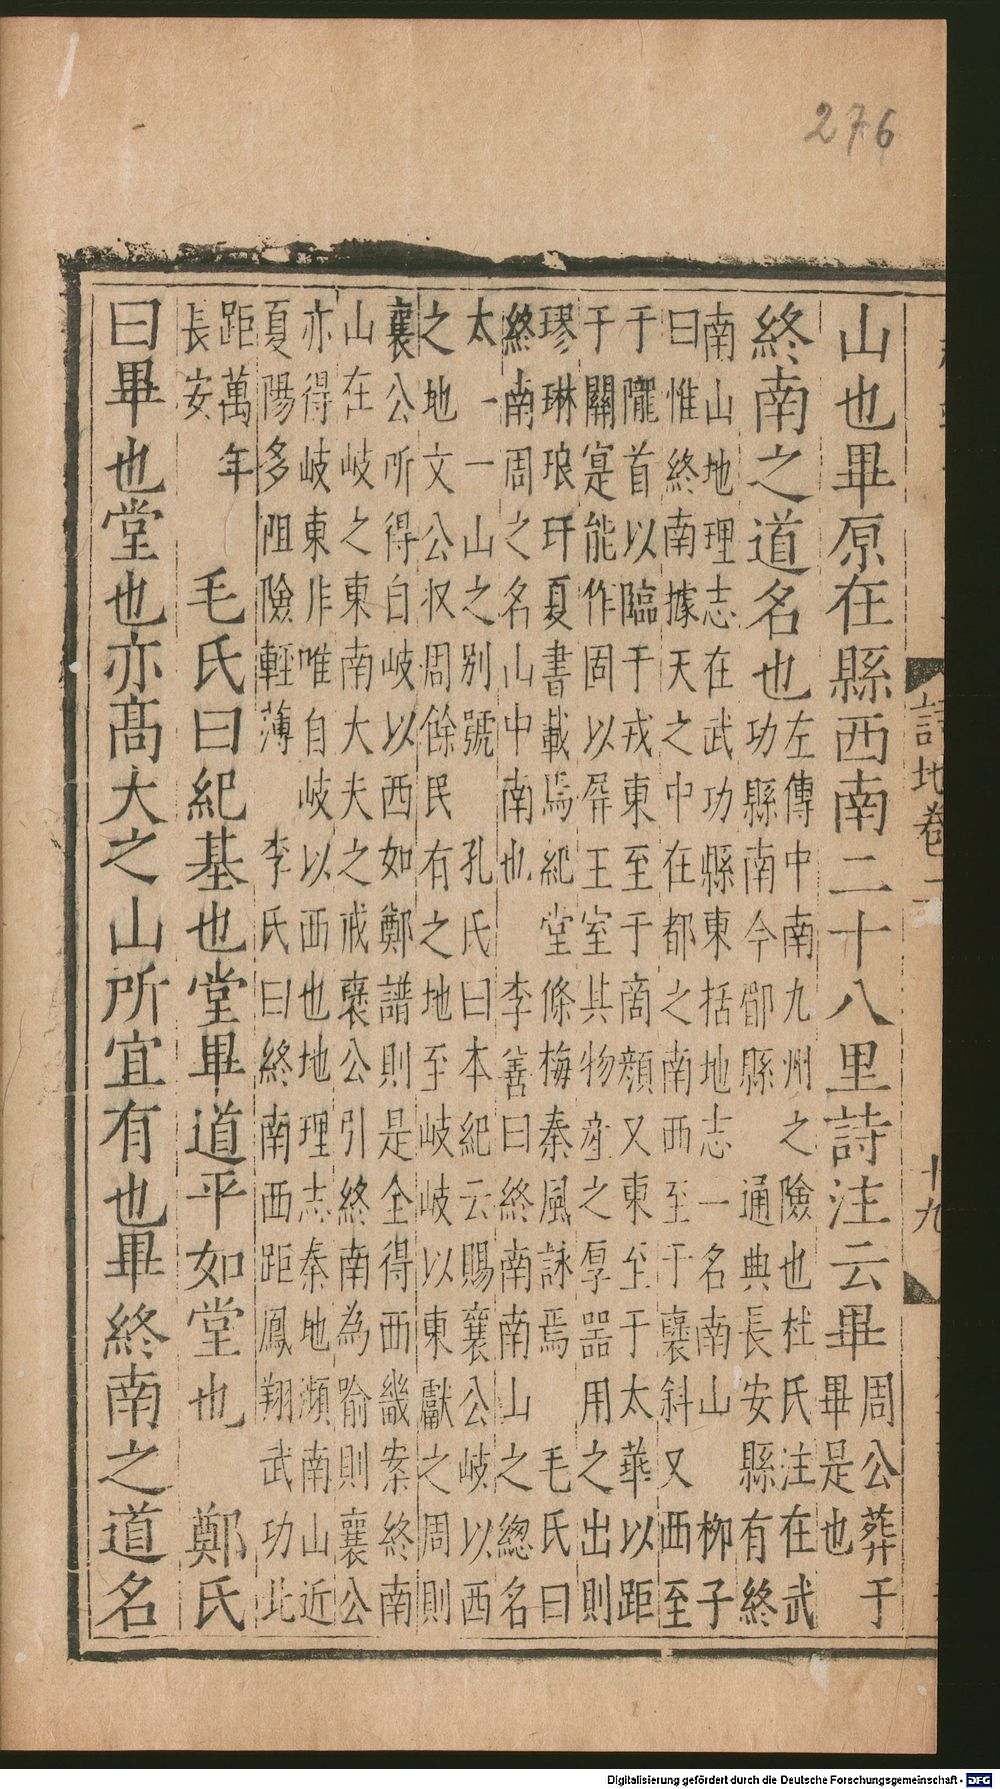 276
詩地卷
十九
山也畢原在縣西南二十八里詩注云畢
周公葬于
畢是也
終南之道名也
左傳中南九州之險也杜氏注在武
功縣南今郿縣　通典長安縣有終
南山地理志在武功縣東括地志一名南山　柳子
曰惟終南據天之中在都之南西至于襃斜又西至
于隴首以臨于戎東至于商顔又東至于太華以距
于關寔能作固以屏王室其物産之厚器用之出則
璆琳琅玕夏書載焉紀堂條梅秦風詠焉　毛氏曰
終南周之名山中南也　李善曰終南南山之緫名
太一一山之别號　孔氏曰本紀云賜襄公岐以西
之地文公収周餘民有之地至岐岐以東獻之周則
襄公所得自岐以西如鄭譜則是全得西畿案終南
山在岐之東南大夫之戒襄公引終南為喻則襄公
亦得岐東非唯自岐以西也地理志秦地瀕南山近
夏陽多阻險輕薄　李氏曰終南西距鳳翔武功北
距萬年
長安
毛氏曰紀基也堂畢道平如堂也　鄭氏
曰畢也堂也亦高大之山所宜有也畢終南之道名
Digitalisierung gefördert durch die Deutsche Forschungsgemeinschaft - DFG